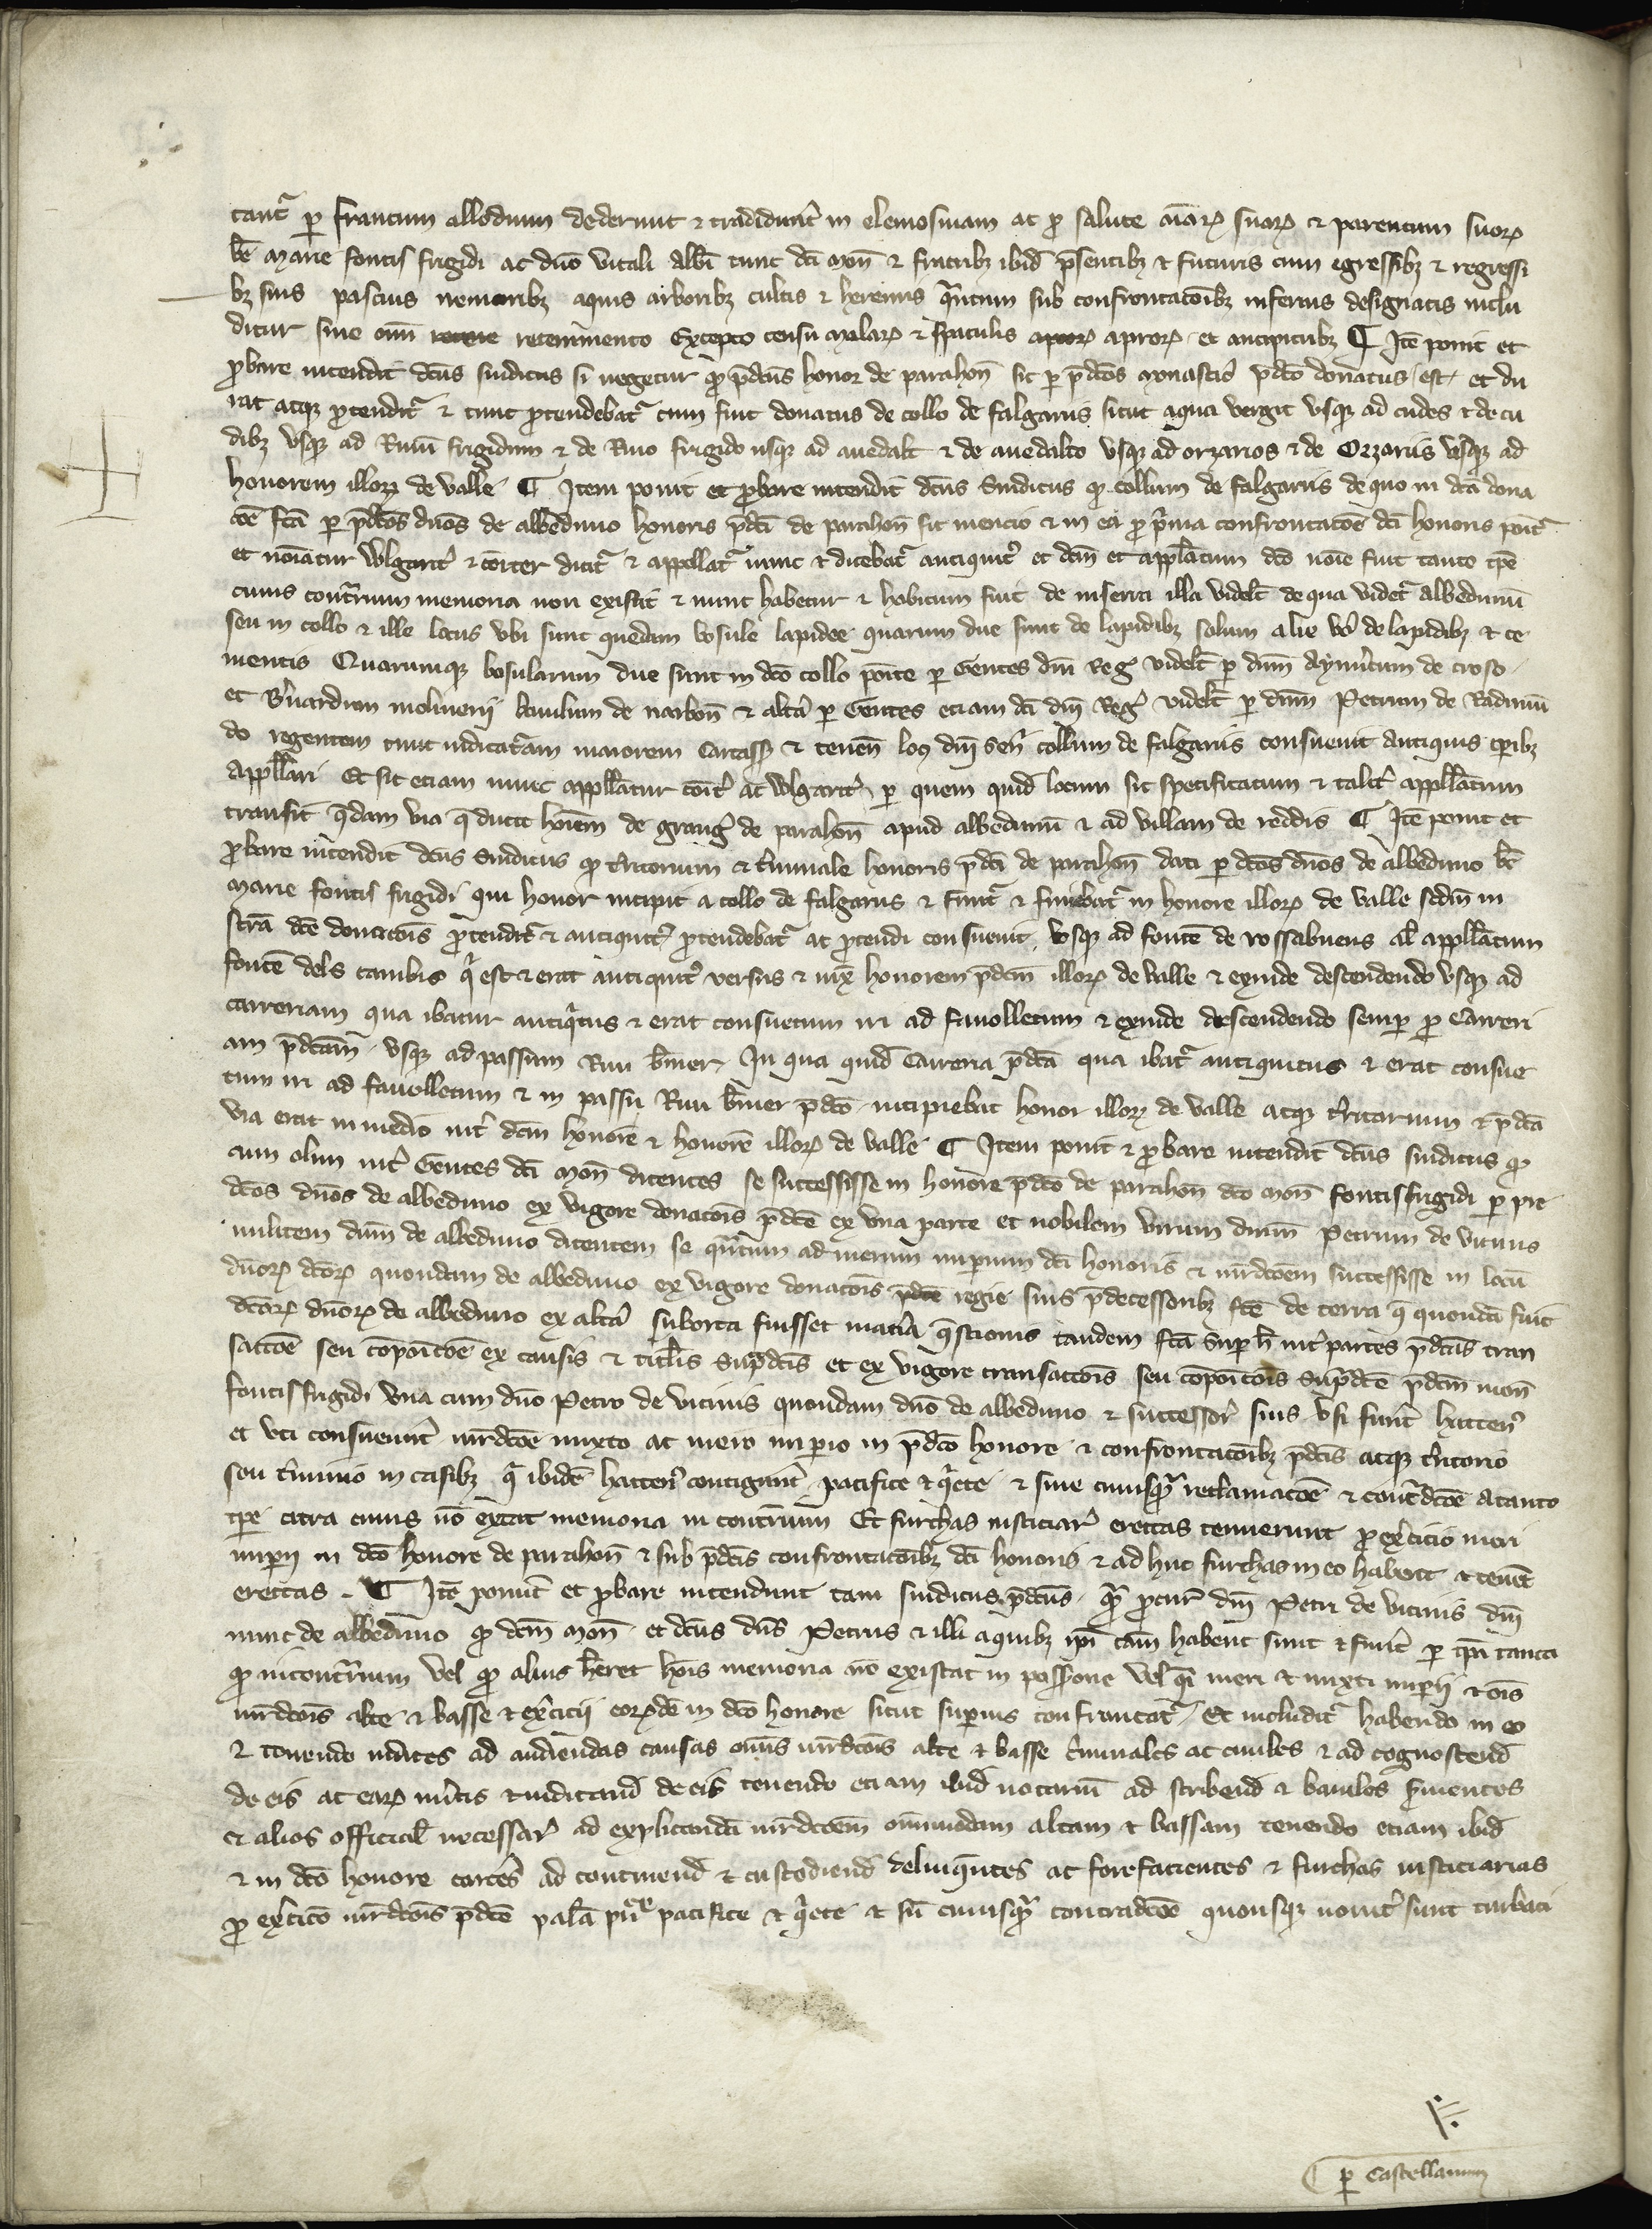 tant̉ ꝑ francum allodium dederunt ⁊ tradidunt̉ in elemosinam ac ꝓ salute aīarꝝ suarꝝ ⁊ parentum suorꝝ
bē marie fontis frigidi ac dn̄o vitali abbī tunc dc̄i mon̄ ⁊ fratribꝫ ibid̄ p̄sentibꝫ ⁊ futuris cum egressibꝫ ⁊ regressi
bꝫ suis pascuis nemoribꝫ aquis arboribꝫ cultis ⁊ heremis q̄ntum sub confrontac̄oibꝫ inferius designatis inclu
ditur sine om̄i retenimento Excepto censu malarꝝ ⁊ spatulis aprorꝝ et ancipitribꝫ ¶ Itē ponit et
ꝓbare intendit dc̄us sindicus si negetur ꝙ p̄dc̄us honor de parahon̄ sic ꝑ p̄dc̄os monasteº p̄dc̄o donatus est et du
rat atqꝫ ꝓtendit̉ ⁊ tunc ꝓtendebat̉ cum fuit donatus de collo de falgariis sicut aqua vergit vsqꝫ ad cudes ⁊ de cu
dibꝫ vsqꝫ ad Riuū frigidum ⁊ de Riuo frigido usqꝫ ad auedalt ⁊ de auedalto vsqꝫ ad orzarios ⁊ de Orzariis vsqꝫ ad
honorem illorꝝ de valle ¶ Item ponit et ꝓbare intendit dc̄us Sindicus ꝙ collum de falgariis de quo in dc̄a dona
cōe fc̄a ꝑ p̄dc̄os dn̄os de albeduno honoris p̄dc̄i de parahon̄ fit mencio ⁊ in ea ꝓ p̄ma confrontacōe dc̄i honoris pōit̉
et noīatur vulgarit̉ ⁊ cōiter dicit̉ ⁊ appellat̉ nunc ⁊ dicebat̉ antiquit̉ et dcm̄ et appllatum dc̄o noīe fuit tanto tp̄e
cuius contr̉rium memoria non existit ⁊ nunc habetur ⁊ habitum fuit de inserra illa videlt̄ de qua videt̉ albedunū
seu in collo ⁊ ille locus vbi sunt quedam bosule lapidee quarum due sunt de lapidibꝫ solum alie vo̊ de lapidibꝫ ⁊ ce
mentis Quarumqꝫ bosularum due sunt in dc̄o collo pōite ꝑ Gentes dn̄i Reg̉ videlt̄ ꝑ dnm̄ Aymˀicum de croso
et Bˀnardum molinerii baiulum de narbon̄ ⁊ altˀa ꝑ Gentes etiam dc̄i dn̄i Reg̉ videlt̄ ꝑ dnm̄ Petrum de Radinū
do regentem tunc iudicatˀam maiorem Carcass̉ ⁊ tenen̄ locꝫ dn̄i Sen̄ collum de falgariis consueuit antiquis tꝑibꝫ
Appllari Et sic etiam nunc appllatur cōit̉ ac vulgarit̉ ꝑ quem quid̄ locum sic specificatum ⁊ talit̉ appllatum
transit q̄dam via q̄ ducit hoīem de grang̉ de parahon̄ apud albedunū ⁊ ad villam de reddis ¶ Itē ponit et
ꝓbare intendit dc̄us Sindicus ꝙ tˀritorium ⁊ tˀminale honoris p̄dc̄i de parahon̄ dati ꝑ dc̄os dn̄os de albeduno bē
marie fontis frigidi qui honor incipit a collo de falgariis ⁊ finit̉ ⁊ finiebat̉ in honore illorꝝ de valle scdm̄ in
strā dc̄e donacōis ꝓtendit̉ ⁊ antiquit̉ ꝓtendebat̉ ac ꝓtendi consueuit vsqꝫ ad fontē de rossabuens al̄ appllatum
fontē dels cambis q̉ est ⁊ erat antiquit̉ versus ⁊ iux̄ honorem p̄dcm̄ illorꝝ de valle ⁊ exinde descendendo vsqꝫ ad
carreriam qua ibatur antiq̉tus ⁊ erat consuetum iri ad fauolletum ⁊ exinde descendendo semꝑ ꝓ Careri
am p̄dcam̄ vsqꝫ ad passum Riui bˀmer In qua quid̄ Careria p̄dc̄a qua ibat̉ antiquitus ⁊ erat consue
tum iri ad fauolletum ⁊ in passu Riui bˀmer p̄dc̄o incipiebat honor illorꝝ de valle atqꝫ tˀritorium ⁊ p̄dc̄a
via erat in medio int̉ dcm̄ honorē ⁊ honorē illorꝝ de valle ¶ Item ponit ⁊ ꝓbare intendit dc̄us sindicus ꝙ
cum olim int̉ Gentes dc̄i mon̄ dicentes se successisse in honore p̄dc̄o de parahon̄ dc̄o mon̄ fontisfrigidi ꝑ pre
dc̄os dn̄os de albeduno ex vigore donacōis p̄dc̄e ex vna parte et nobilem virum dnm̄ Petrum de vicinis
militem dnm̄ de albeduno dicentem se quātum ad merum imꝑium dc̄i honoris ⁊ iur̄dcoēm successisse in locū
dn̄orꝝ dc̄orꝝ quondam de albeduno ex vigore donacōis regie suis p̄decessoribꝫ fc̄e de terra q̄ quondā fuit
dc̄orꝝ dn̄orꝝ de albeduno ex altˀa suborta fuisset matˀia q̄stionis tandem fc̄a Suꝑ h̄ int̉ partes p̄dc̄as tran
saccōe seu cōpoīcōe ex causis ⁊ titlis Sup̄dc̄is et ex vigore transaccōis seu cōpoīcōis Sup̄dc̄e p̄dcm̄ mon̄
fontisfrigidi vna cum dn̄o Petro de vicinis quondam dn̄o de albeduno ⁊ successor̉ suis vsi sunt hactenˀ
et vti consueuut̉ iur̄dcōe mixto ac mero imꝑio in p̄dc̄o honore ⁊ confrontacōibꝫ p̄dc̄is atqꝫ tˀritorio
seu tˀminio in casibꝫ q̉ ibidē hactenˀ contigūt pacifice ⁊ q̉ete ⁊ sine cuiusqꝫ reclamacōe ⁊ contˀdcōe atanto
tꝑe citra cuius nō extat memoria in contr̉rium Et furchas iusticiar̉ erectas tenuerunt ꝓ exˀcicio meri
imꝑii in dc̄o honore de parahon̄ ⁊ sub p̄dc̄is confrontacōibꝫ dc̄i honoris ⁊ ad huc furchas in eo habent ⁊ tenēt
erectas ¶ Itē ponut̉ et ꝓbare intendunt tam sindicus p̄dc̄us q̄ꝫ ꝓcur̉ dn̄i Petri de vicinis dn̄i
nunc de albeduno ꝙ dcm̄ mon̄ et dc̄us dn̄s Petrus ⁊ illi aquibꝫ ip̄i cām habent sunt ⁊ fuut̉ ꝑ tp̄a tanta
ꝙ incontr̉rium vel ꝙ alius hˀeret hoīs memoria nō existat in possione vel q̄i meri ⁊ mixti imꝑii ⁊ oīs
iur̄dcōis alte ⁊ basse ⁊ exˀcicii eorꝝdē in dc̄o honore sicut suꝑius confrontat̉ Et includit̉ habendo in eo
⁊ tenendo iudices ad audiendas causas omīs iur̄dcōis alte ⁊ basse cˀminales ac ciuiles ⁊ ad cognoscend̄
de eis ac earꝝ mˀitis ⁊ iudicand̄ de eis tenendo etiam ibid̄ notariū ad scribend̄ ⁊ baiulos sˀuientes
⁊ alios official̄ necessar̉ ad explicandā iur̄dcoēm om̄imodam altam ⁊ bassam tenendo etiam ibid̄
⁊ in dc̄o honore carcˀes ad continend̄ ⁊ custodiend̄ delinq̄ntes ac forefacientes ⁊ furchas iusticiarias
ꝓ exˀcico iur̄dcōis p̄dc̄e palā pu͡ce pacifice ⁊ q̉ete ⁊ sn̄ cuiusqꝫ contradcōe quousqꝫ nouit̉ sunt turbati
¶ ꝑ Castellanum